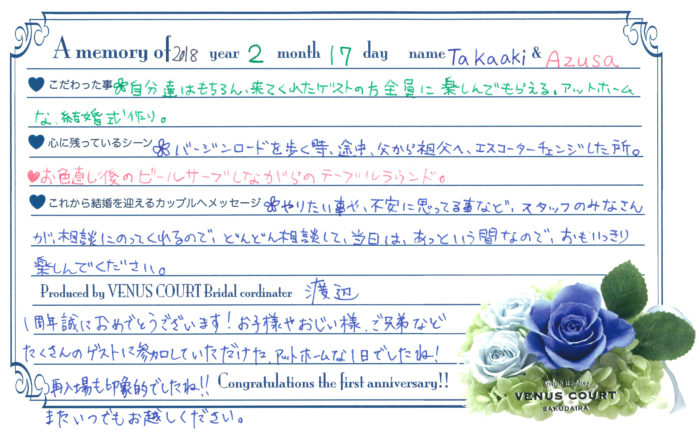 A memory of 2018 year 2 month 17 day name Takaaki & Azusa
こだわった事 自分達はもちろん、来てくれたゲストの方全員に楽しんでもらえる。アットホーム
な、結婚式作り。
心に残っているシーン バージンロードを歩く時、途中、父から祖父へ、エスコーターチェンジした所。
お色直し後のビールサーブしながらのテーブルラウンド。
これから結婚を迎えるカップルへメッセージ やりたい事や、不安に思ってる事など、スタッフのみなさん
が、相談にのってくれるので、どんどん相談して、当日は、あっという間なので、おもいっきり
楽しんでください。
Produced by VENUS COURT Bridal cordinater 渡辺
1周年誠におめでとうございます！お子様やおじい様、ご兄弟など
たくさんのゲストに参加していただけた、アットホームな1日でしたね！
再入場も印象的でしたね!! Congratulations the first anniversary!!
またいつでもお越しください。
VENUS COURT
SAKUDAIRA